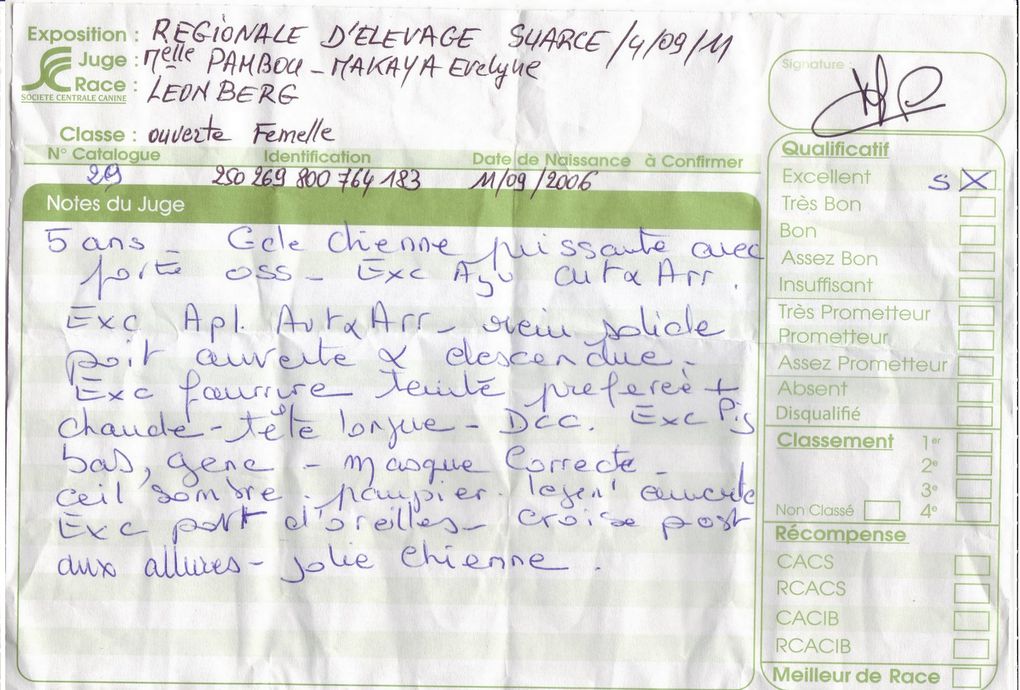 Exposition : REGIONALE D'ELEVAGE SUARCE /4/09/11
Juge : Melle PAMBOU - MAKAYA Evelyne
Race : LEONBERG
SOCIETE CENTRALE CANINE
Classe : ouverte Femelle
N° Catalogue Identification Date de Naissance à Confirmer
29 250 269 800 764 183 11/09/2006
Notes du Juge
5 ans - Gde chienne puissante avec
forte oss - Exc Agu aut & Arr.
Exc Apl. Aut & Arr - rein solide
poit ouverte & descendue -
Exc fourrure teinte préferée +
chaude - tête longue - Dcc. Exc Pig
bas, genc - masque Correcte -
oeil sombre. paupier. legent ouverte
Exc port d'oreilles - croise post
aux allures - jolie chienne.
Signature :
Qualificatif
Excellent S X
Très Bon
Bon
Assez Bon
Insuffisant
Très Prometteur
Prometteur
Assez Prometteur
Absent
Disqualifié
Classement 1er
2e
3e
Non Classé 4e
Récompense
CACS
RCACS
CACIB
RCACIB
Meilleur de Race